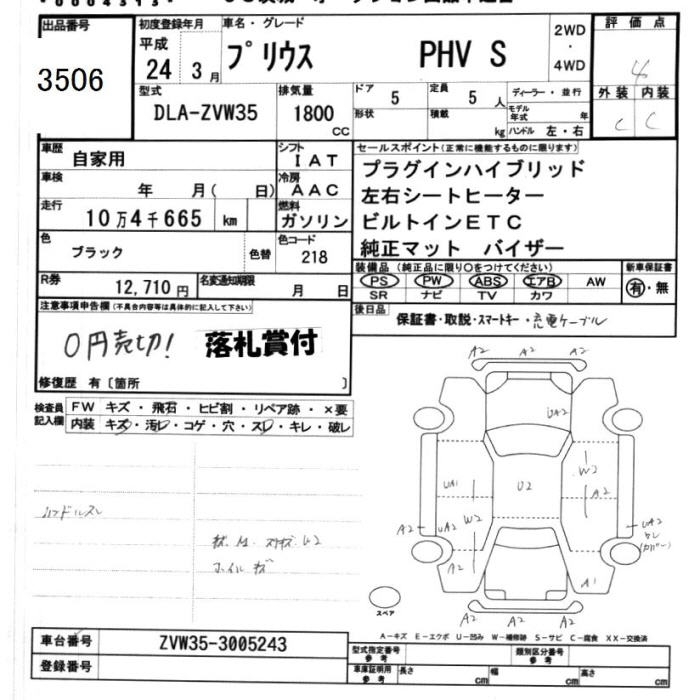 出品番号
3506
初度登録年月
平成
24 3月
車名・グレード
プリウス PHV S
2WD
・
4WD
評価点
4
外装 内装
C C
型式
DLA-ZVW35
排気量
1800
CC
ドア
5
定員
5 人
形状
積載
kg
ディーラー・並行
モデル年式 年
ハンドル 左・右
車歴
自家用
シフト
IAT
車検
年 月( 日)
冷房
AAC
走行
10万4千665 km
燃料
ガソリン
色
ブラック
色替
色コード
218
R券
12,710円
名変通知期限
月 日
セールスポイント(正常に機能するものに限ります)
プラグインハイブリッド
左右シートヒーター
ビルトインETC
純正マット バイザー
装備品(純正品に限り○をつけてください)
PS PW ABS エアB AW
SR ナビ TV カワ
新車保証書
有・無
後日品
保証書・取説・スマートキー・充電ケーブル
注意事項申告欄(不具合内容等は具体的に記入して下さい)
0円売切! 落札賞付
修復歴 有〔箇所 〕
検査員
記入欄
FW キズ・飛石・ヒビ割・リペア跡・×要
内装 キズ・汚レ・コゲ・穴・スレ・キレ・破レ
ハンドルスレ
ホイルキズ
A2 A2 A2
UA2
W2
UA1
U2
A2
A2
UA2
W2
UA2
A2
A1
A2 A2 A2
スペア
A-キズ E-エクボ U-凹み W-補修跡 S-サビ C-腐食 XX-交換済
車台番号
ZVW35-3005243
登録番号
型式指定番号
参考
類別区分番号
参考
車庫証明用
参考
長さ cm
幅 cm
高さ cm